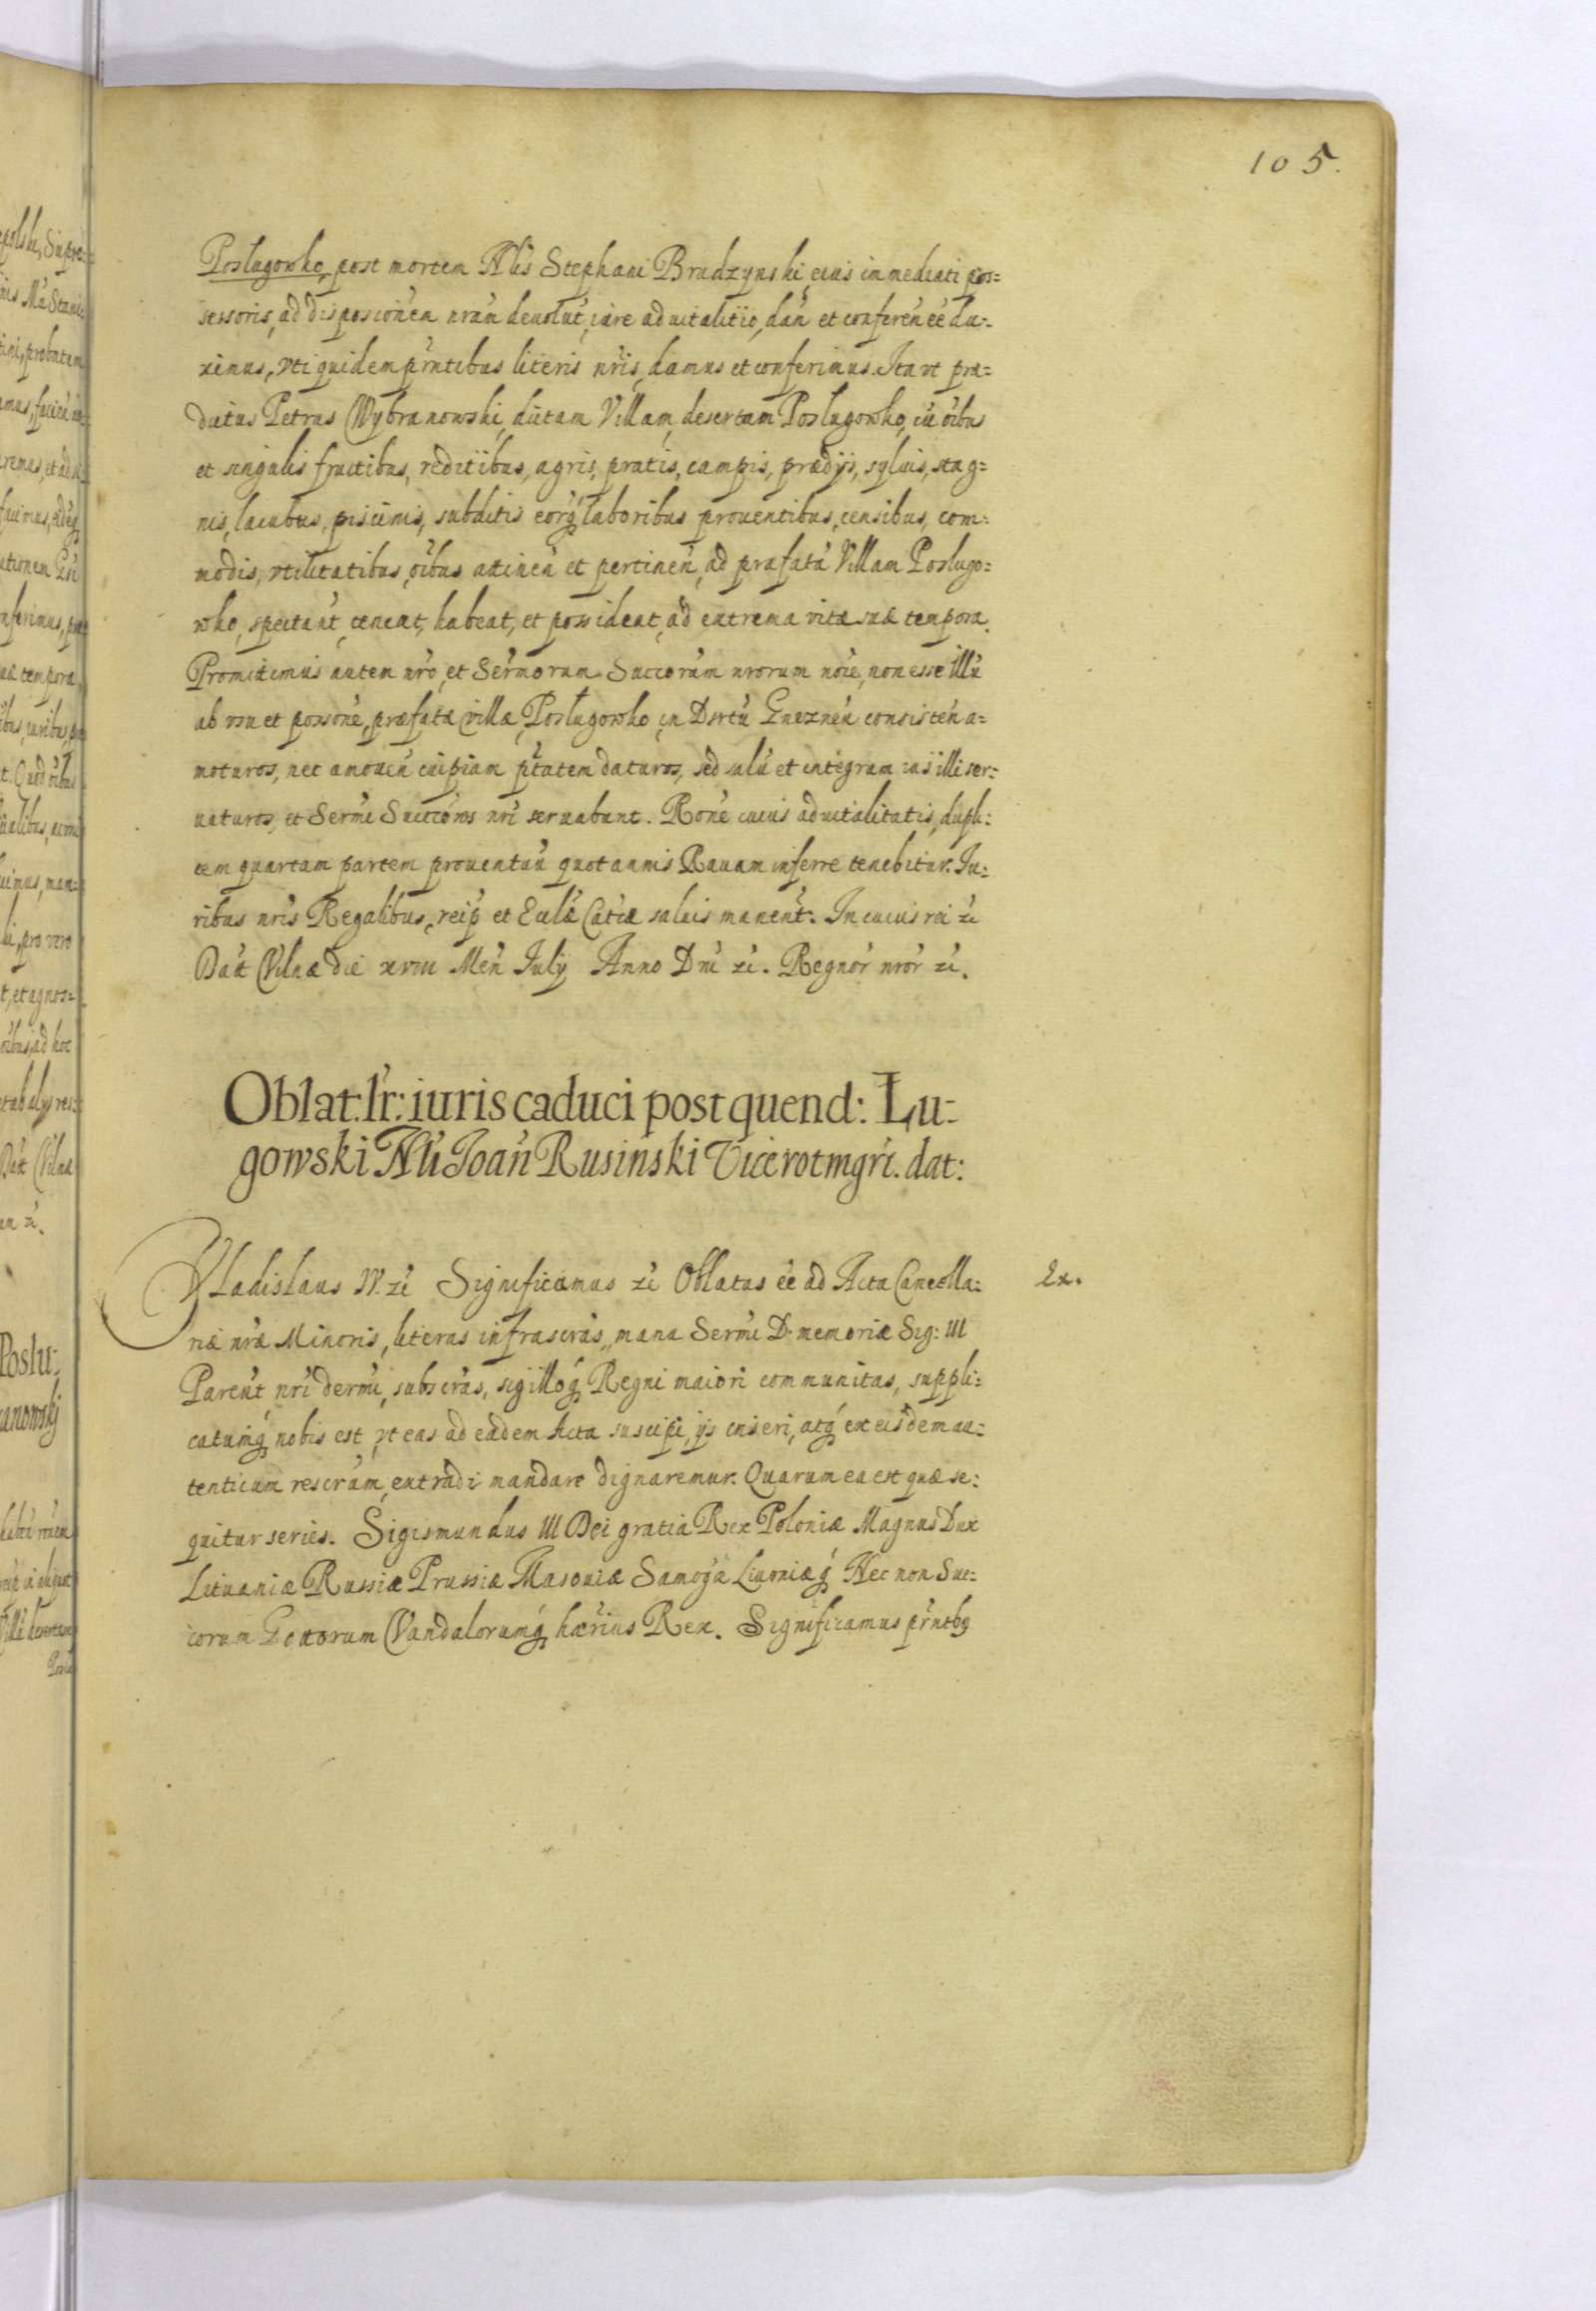 105.
Poslugowko, post mortem Nlis Stephani Brudzynski, eius inmediati pos=
sessoris, ad disposiōnem nrām deuolut, iure aduitalitio, dan et conferen ēē du=
ximus, vti quidem prntibus literis nris, damus et conferimus. Ita vt præ=
dictus Petrus Wybranowski, dictam Villam desertam Poslugowko, cū oībus
et singulis fructibus, reditibus, agris, pratis, campis, prædijs, syluis, stag=
nis, lacubus, piscinis, subditis eorq; laboribus prouentibus, censibus, com=
modis, vtilitatibus, oībus attinen et pertinen, ad præfatā Villam Poslugo=
wko, spectant, teneat, habeat, et possideat, ad extrema vitæ suæ tempora.
Promittimus autem nro, et Sermorum Succorum nrorum noīe, non esse illū
ab vsu et possōne, præfatæ villæ, Posługowko in Dsrtū Gneznēn consisten a=
moturos, nec amouen cuipiam ptatem daturos, sed saluū et integrum ius illi ser=
uaturos, et Sermi Succōres nri seruabunt. Rōne cuius aduitalitatis, dupli=
cem quartam partem prouentuū quotannis Rauam inferre tenebitur. Iu=
ribus nris Regalibus, reip et Ecclæ Catcæ saluis manent. In cuius rei zc
Dat Vilnæ die xviii Men July Anno Dni zc. Regnor nror zc.
Oblat: lr: iuris caduci post quend: Lu=
gowski Nli Joan Rusinski Vicerotmgri. dat:
Vladislaus IV. zc Significamus zc Oblatas ēē ad Acta Cancella=
riæ nræ Minoris, literas infrascras, manu Sermi D. memoriæ Sig: III
Parent nri dermi, subscras, sigilloq; Regni maiori communitas, suppli=
catumq; nobis est, vt eas ad eadem Acta suscipi, ijs inseri, atq; ex eisdem au=
tenticum rescrum, extradi mandare dignaremur. Quarum ea est quæ se=
quitur series. Sigismundus III Dei gratia Rex Poloniæ Magnus Dux
Lituaniæ Russiæ Prussiæ Masouiæ Samogæ Liuoniæq; Nec non Sue=
corum Gottorum Vandalorumq; hærius Rex. Significamus prntbq
Ex.